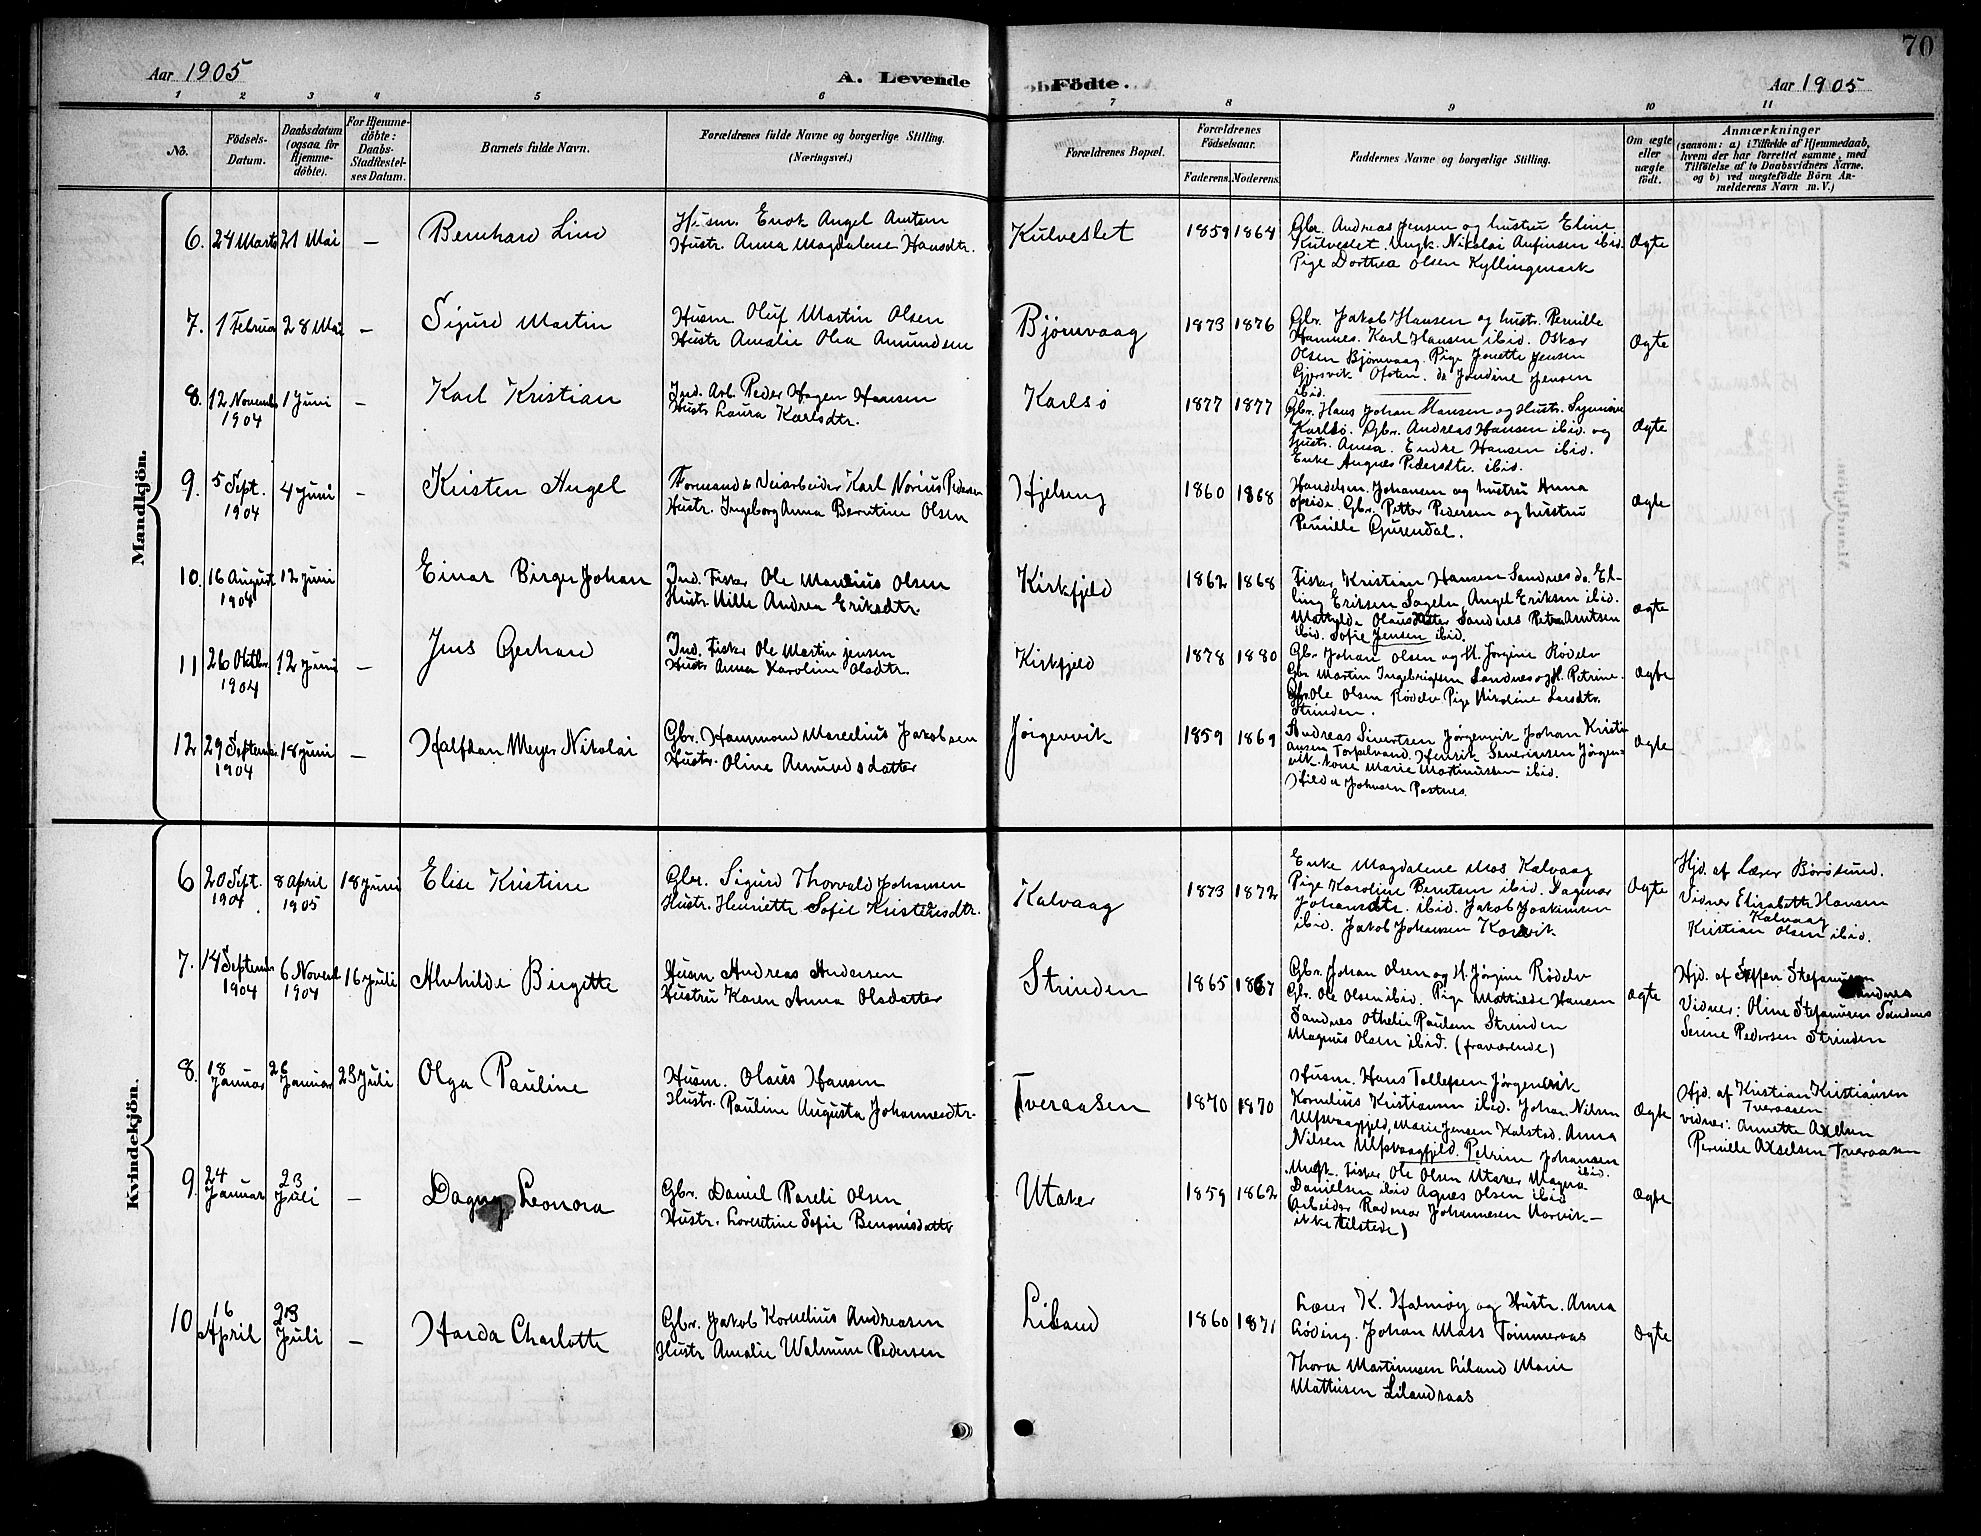 70
Aar 1905
A. Levende
Födte.
Aar 1905
1 2 3 4 5 6 7 8 9 10 11
No.
Födsels-
Datum.
Daabsdatum
(ogsaa for
Hjemme-
döbte).
For Hjemme-
döbte:
Daabs-
Stadfæstel-
ses Datum.
Barnets fulde Navn.
Forældrenes fulde Navne og borgerlige Stilling.
(Næringsvei.)
Forældrenes Bopæl.
Forældrenes
Födselsaar.
Faderens. Moderens.
Faddernes Navne og borgerlige Stilling.
Om ægte
eller
uægte
födt.
Anmærkninger
(saasom: a) i Tilfælde af Hjemmedaab,
hvem der har forrettet samme, med
Tilföielse af to Daabsvidners Navne.
og b) ved uægtefödte Börn An-
melderens Navn m. V.)
Mandkjön.
6. 24 Marts 21 Mai — Bernhard Lind
Husm. Enok Angel Antsen
Hustr. Anna Magdalene Hansdtr.
Kulveslet 1859 1864
Gbr. Andreas Jensen og hustru Eline
Kulveslet. Ungk. Nikolai Anfinsen ibid.
Pige Dorthea Olsen Kyllingmark
Ægte
7. 1 Februar 28 Mai — Sigurd Martin
Husm Oluf Martin Olsen
Hustr Amalie Olea Amundsen
Bjørnvaag 1873 1876
Gbr. Jakob Hansen og hustr. Pernille
Hamnes. Karl Hansen ibid. Oskar
Olsen Bjørnvaag. Pige Jonette Jensen
Gjersvik Ofoten. do Jondine Jensen
ibid.
Ægte
8. 12 Novemb 1904 1 Juni — Karl Kristian
Ind. Arb. Peder Hagen Hansen
Hustr Laura Karlsdtr.
Karlsø 1877 1877
Gbr. Hans Johan Hansen og Hustr. Synnøve
Karlsø. Gbr. Andreas Hansen ibid. og
Hustr. Anna. Endre Hansen ibid.
Enke Angnes Pedersdtr. ibid.
Ægte
9. 5 Sept. 1904 4 Juni — Kristen Angel
Formand v Veiarbeider Karl Norius Pedersen
Hustr. Ingeborg Anna Berntine Olsen
Hjelseng 1860 1868
Handelsm. Johansen og hustru Anna
Opeide. Gbr. Petter Pedersen og hustru
Pernille Djurendal.
Ægte
10. 16 August 1904 12 Juni Einar Birger Johan
Ind. Fisker Ole Mandius Olsen
Hustr. Nille Andrea Eriksdtr.
Kirkfjeld 1862 1868
Fisker Kristian Hansen Sandnes do. El-
ling Eriksen Sagelv, Angel Eriksen ibid.
Mathilde Olausdatter Sandnes Petra Amtsen
ibid. Sofie Jensen ibid.
Ægte
11 26 Oktbr. 1904 12 Juni — Jens Gerhard
Ind. Fisker Ole Martin Jensen
Hustr Anna Karoline Olsdtr.
Kirkfjeld 1878 1880
Gbr. Johan Olsen og H. Jørgine Rødelv
Gbr Martin Ingebrigtsen Sandnes og H. Petrine.
Gbr. Ole Olsen Rødelv Pige Nikoline Larsdtr.
Strinden.
Ægte
12 29 Septemb. 1904 18 Juni — Halfdan Meyer Nikolai
Gbr. Hammond Marselius Jakobsen
Hustr. Oline Amundsdatter
Jørgenvik 1859 1869
Andreas Sivertsen Jørgenvik Johan Kristi
ansen Torpelvand. Henrik Severinsen Jørgen-
vik. Kone Marie Martinussen ibid.
Hilda Johnsen Postnes.
Ægte
Kvindekjön.
6 20 Sept. 1904 8 April 1905 18 Juni Elise Kristine
Gbr. Sigurd Thorvald Johansen
Hustr. Henriette Sofie Kristensdtr.
Kalvaag 1873 1872
Enke Magdalene Mos Kalvaag
Pige Karoline Berntsen ibid. Dagmar
Johansdtr. ibid. Jakob Joakimsen
ibid. Jakob Johansen Korsvik
Ægte
Hjd. af Lærer Børøsund.
Vidner Elisabeth Hansen
Kalvaag
Kristian Olsen ibid.
7. 14 Septemb 1904 6 Novemb 1904 16 Juli Alvhilde Birgitte
Husm Andreas Andersen
Hustru Karen Anna Olsdatter
Strinden 1865 1867
Gbr. Johan Olsen og H. Jørgine Rødelv
Gbr. Ole Olsen ibid. Pige Mathilde Hansen
Sandnes Othelie Paulsen Strinden
Magnus Olsen ibid. (fraværende)
Ægte
Hjd. af Steffen Stefanusen
Sandnes
Vidner: Oline Stefanusen Sandnes
Serine Pedersen Strinden
8. 18 Januar 26 Januar 23 Juli Olga Pauline
Husm. Olaus Hansen
Hustr. Pauline Augusta Johannesdtr.
Tveraasen 1870 1870
Husm. Hans Tollefsen Jørgenvik
Kornelius Kristiansen ibid. Johan Nilsen
Ulfsvaagfjeld, Marie Jensen Kalstad. Anna
Nilsen Ulfsvaagfjeld. Petrine Johansen
ibid.
Ægte
Hjd. af Kristian Kristiansen
Tveraasen
vidner: Annette Axelsen
Pernille Axelsen Tveraasen
9. 24 Januar 23 Juli — Dagny Leonora
Gbr. Daniel Pareli Olsen
Hustr. Lorentine Sofie Benonisdatter
Utaker 1859 1862
Ungk. Fisker Ole Olsen Utaker Magna
Danielsen ibid Agnes Olsen ibid
Arbeider Radmar Johannesen Narvik —
ikke tilstede)
Ægte
10 16 April 23 Juli — Harda Charlotte
Gbr. Jakob Kornelius Andreasen
Hustr Amalie Walnum Pedersen
Liland 1860 1871
Lærer K. Halmøy og Hustr. Anna
Løding. Johan Mass Tømmeraas
Thora Martinusen Liland Marie
Mathisen Lilandsaas
Ægte